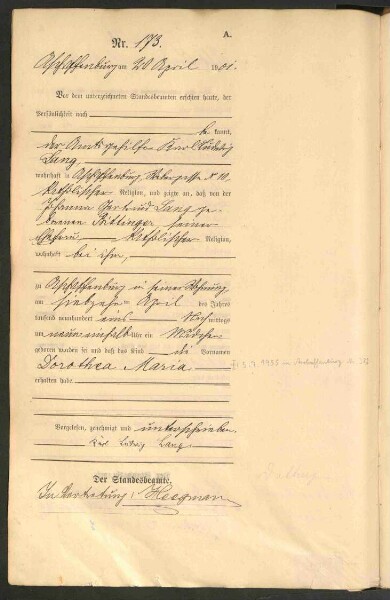 A.
Nr. 173.
Aschaffenburg am 20 April 1901.
Vor dem unterzeichneten Standesbeamten erschien heute, der
Persönlichkeit nach
be kannt,
der Amtsgehilfe Karl Ludwig
Lang,
wohnhaft in Aschaffenburg, № 10,
katholischer Religion, und zeigte an, daß von der
Johanna Gertrud Lang ge-
borenen Bittinger seiner
Ehefrau katholischer Religion,
wohnhaft bei ihm,
zu Aschaffenburg in seiner Wohnung
am siebzehn April des Jahres
tausend neunhundert eins Nach mittags
um neun einhalb Uhr ein Mädchen
geboren worden sei und daß das Kind die Vornamen
Dorothea Maria
erhalten habe.
Vorgelesen, genehmigt und unterschrieben
Karl Ludwig Lang
Der Standesbeamte.
In Vertretung: